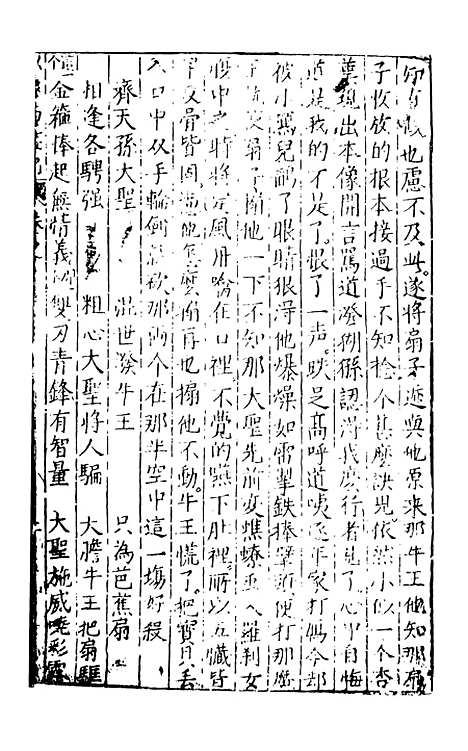 也慮不及此遂將扇子遞與他原來那牛王他知那扇
子收放的根本接過手不知捻个甚麽訣兒依然小似一个杏
葉現出本像開言罵道潑猢猻認得我麽行者見了心中自悔
道是我的不是了恨了一声跌足高呼道咦逐年家打鴈今却
被小鴈兒鵮了眼睛狠得他爆燥如雷掣鉄棒劈頭便打那魔
王就使扇子搧他一下不知那大聖先前変蟭蟟虫入羅刹女
腹中之時將定風丹噙在口裡不覺的嚥下肚裡所以五臟皆
牢皮骨皆固憑他怎麽搧再也搧他不動牛王慌了把寶貝丢
入口中双手輪劍就砍那两个在那半空中這一塲好殺
齊天孫大聖 混世潑牛王 只為芭蕉扇
相逢各騁强 粗心大聖將人騙 大膽牛王把扇誆
金箍棒起無情義 雙刃青鋒有智量 大聖施威噴彩霧